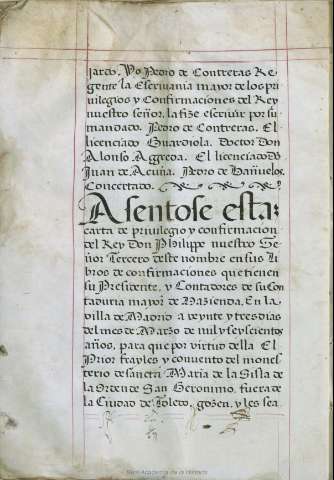 jardo. Yo Pedro de Contreras Re
gente la Escrivania mayor de los pri
vilegios y Confirmaciones del Rey
nuestro señor, la fize escrivir por su
mandado. Pedro de Contreras. El
licenciado Guardiola. Doctor Don
Alonso Aggreda. El licenciado Dō
Juan de Acuña. Pedro de Bañuelos.
Concertado.
Asentose esta
carta de privilegio y confirmacion
del Rey Don Philippe nuestro Se
ñor Tercero deste nombre en sus li
bros de confirmaciones que tienen
su Presidente, y Contadores de su Con
taduria mayor de Hazienda, En la
villa de Madrid a veynte y tres dias
del mes de Marzo de mil y seyscientos
años, para que por virtud della El
Prior frayles y convento del mones
terio de sancta Maria de la Sisla de
la Orden de San Geronimo, fuera de
la Ciudad de Toledo, gozen, y les sea
Real Academia de la Historia